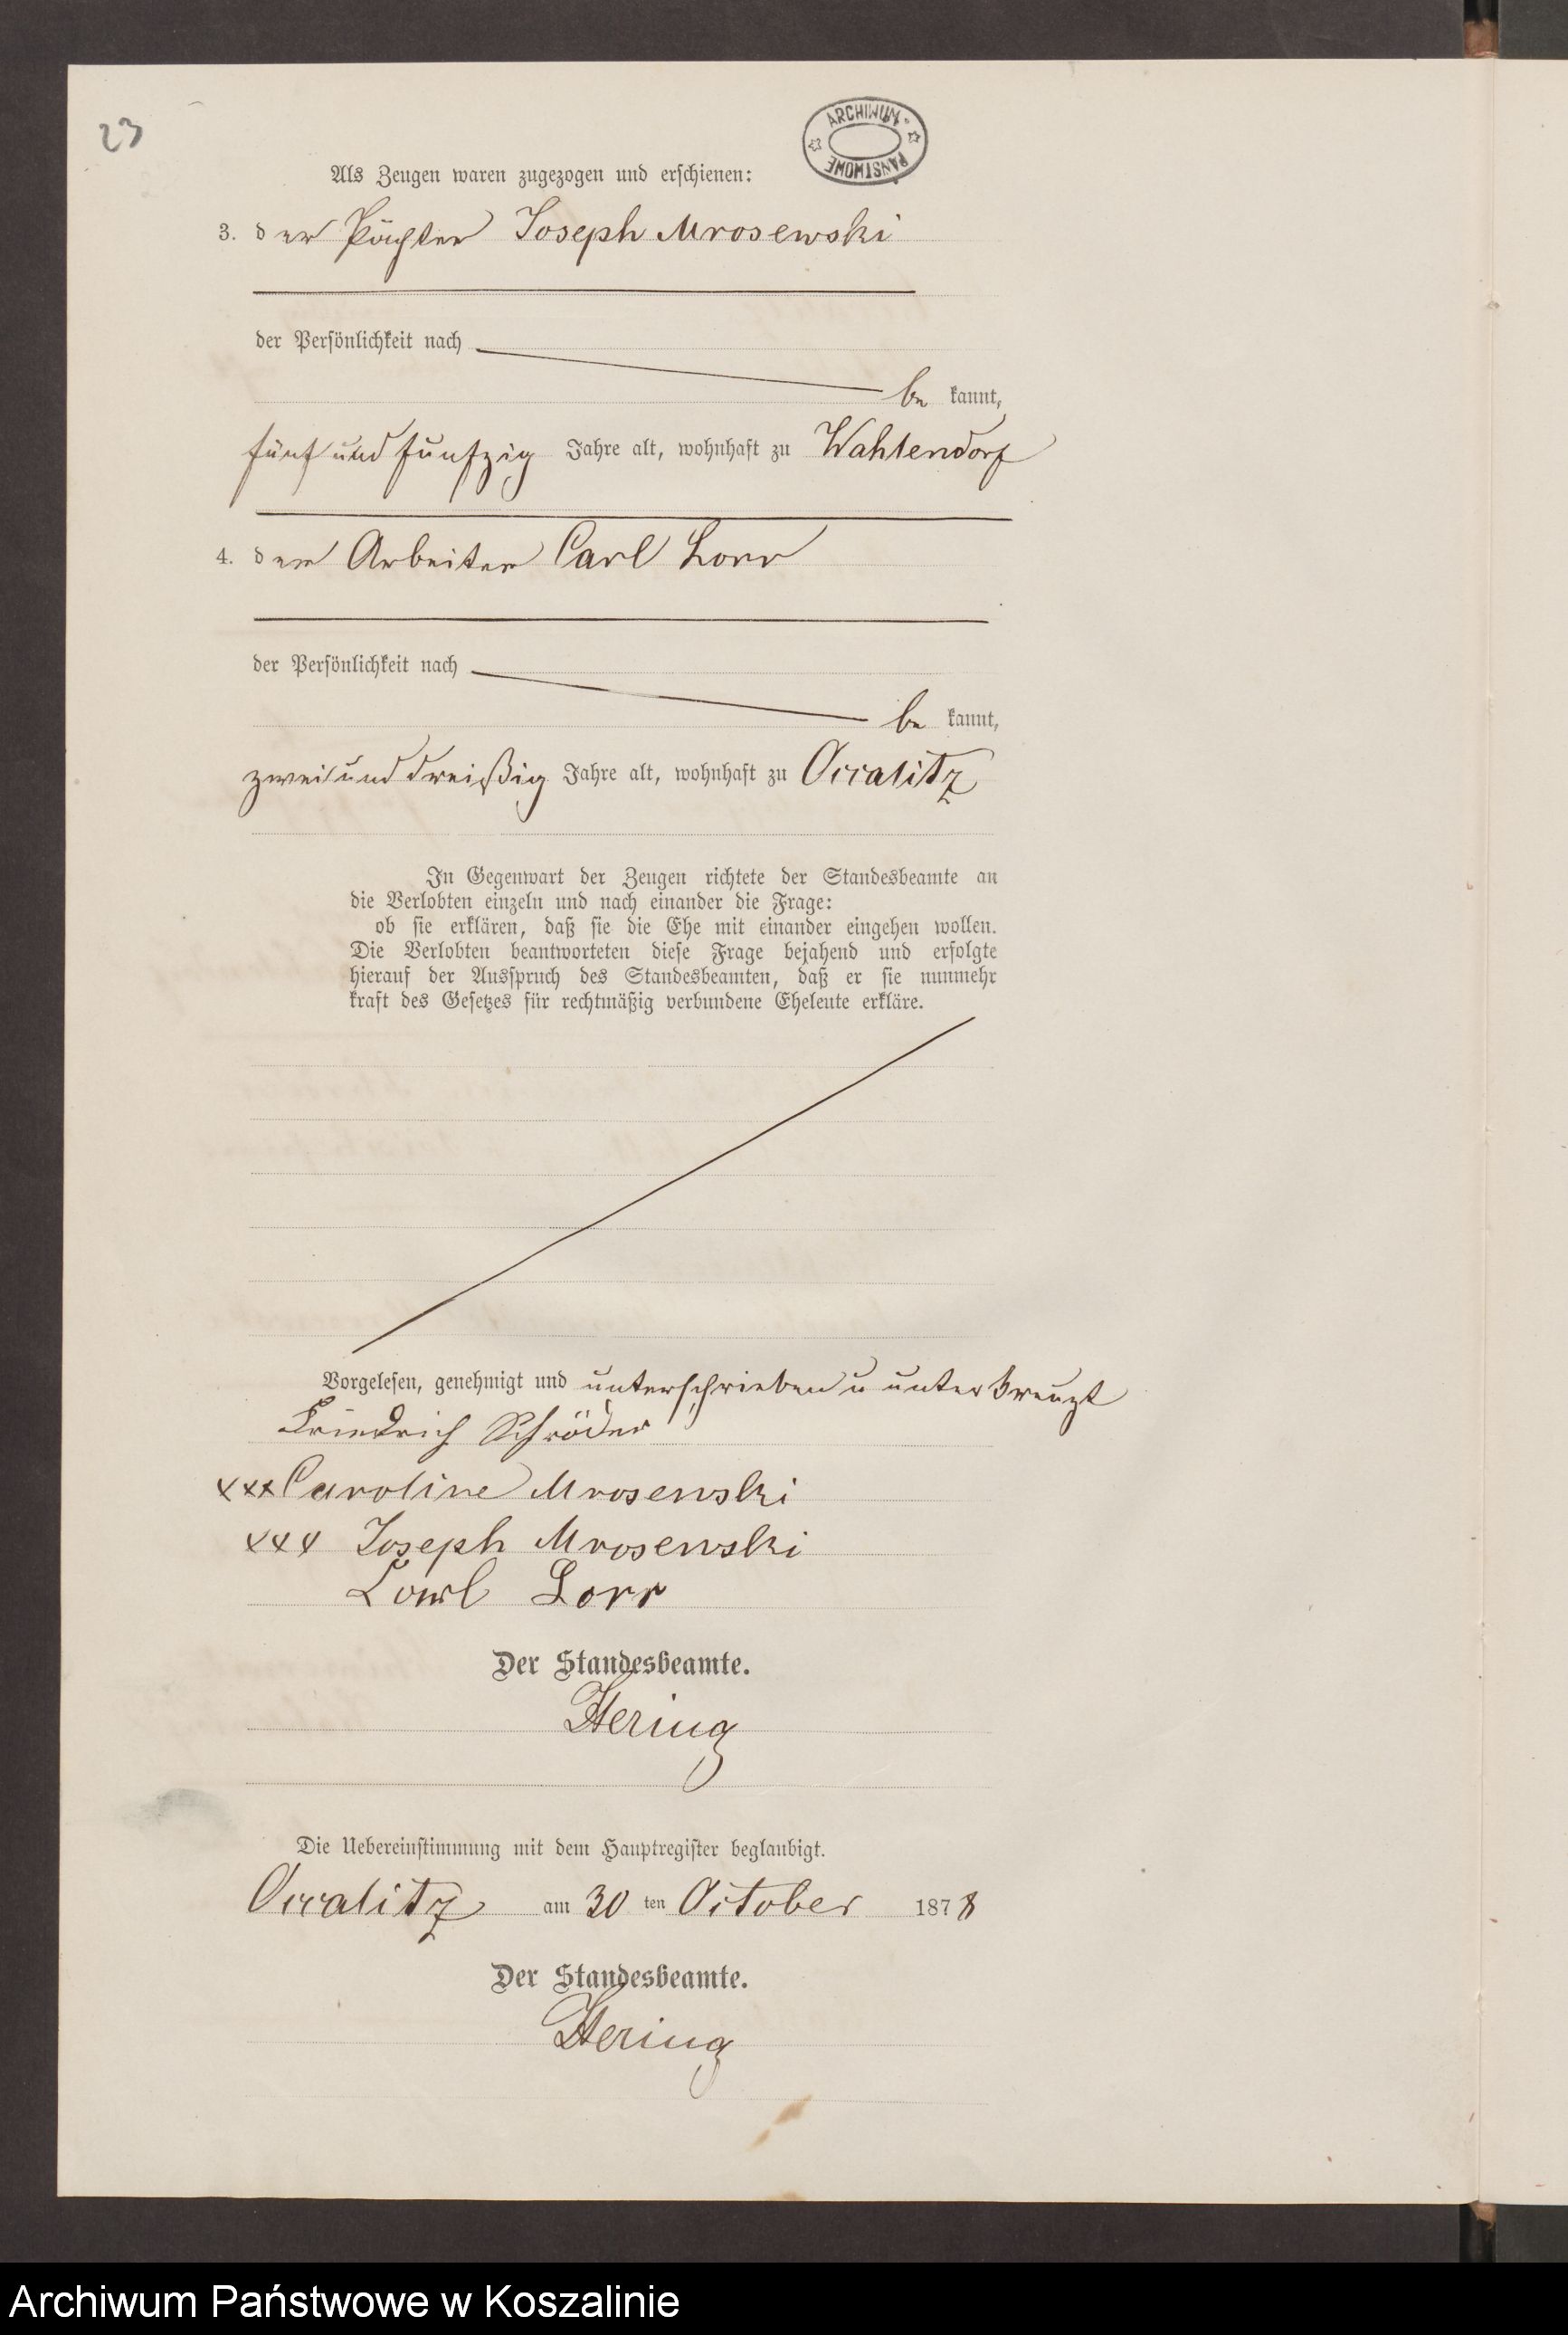 23
ARCHIWUM PAŃSTWOWE
Als Zeugen waren zugezogen und erschienen:
3. der Pächter Joseph Mrosewski
der Persönlichkeit nach
be kannt,
fünf und funfzig Jahre alt, wohnhaft zu Wahlendorf
4. der Arbeiter Carl Lorr
der Persönlichkeit nach
be kannt,
zwei und dreißig Jahre alt, wohnhaft zu Occalitz
In Gegenwart der Zeugen richtete der Standesbeamte an
die Verlobten einzeln und nach einander die Frage:
ob sie erklären, daß sie die Ehe mit einander eingehen wollen.
Die Verlobten beantworteten diese Frage bejahend und erfolgte
hierauf der Ausspruch des Standesbeamten, daß er sie nunmehr
kraft des Gesetzes für rechtmäßig verbundene Eheleute erkläre.
Vorgelesen, genehmigt und unterschrieben u unterkreuzt
Friedrich Schröder
xxx Caroline Mrosewski
xxx Joseph Mrosewski
Carl Lorr
Der Standesbeamte.
Hering
Die Uebereinstimmung mit dem Hauptregister beglaubigt.
Occalitz am 30 ten October 1878
Der Standesbeamte.
Hering
Archiwum Państwowe w Koszalinie